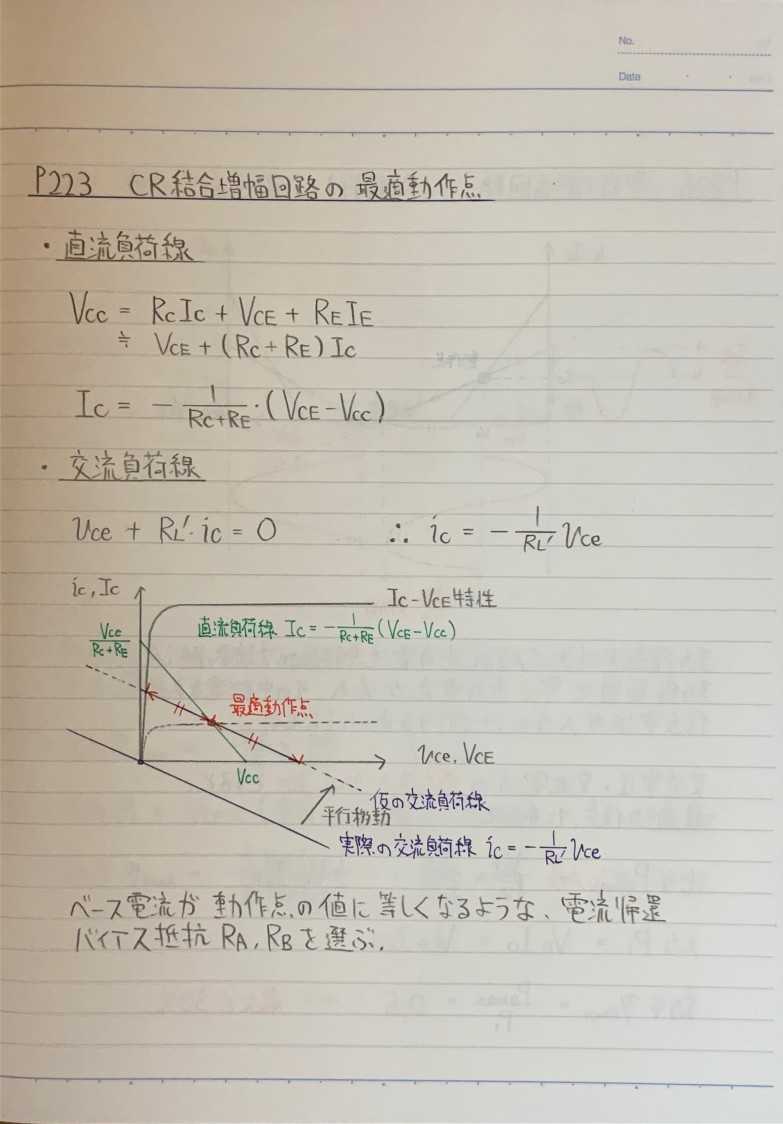 No.
Date
P223 CR結合増幅回路の最適動作点
・直流負荷線
Vcc = RcIc + VCE + REIE
≒ VCE + (Rc+RE) Ic
Ic = - 1/(Rc+RE)・(VCE-Vcc)
・交流負荷線
vce + RL'・ic = 0 ∴ ic = - 1/RL' vce
ic, Ic
Ic-VCE特性
直流負荷線 Ic = - 1/(Rc+RE) (VCE-Vcc)
Vcc/(Rc+RE)
最適動作点
vce, VCE
Vcc
仮の交流負荷線
平行移動
実際の交流負荷線 ic = - 1/RL' vce
ベース電流が動作点の値に等しくなるような、電流帰還
バイアス抵抗 RA, RBを選ぶ.